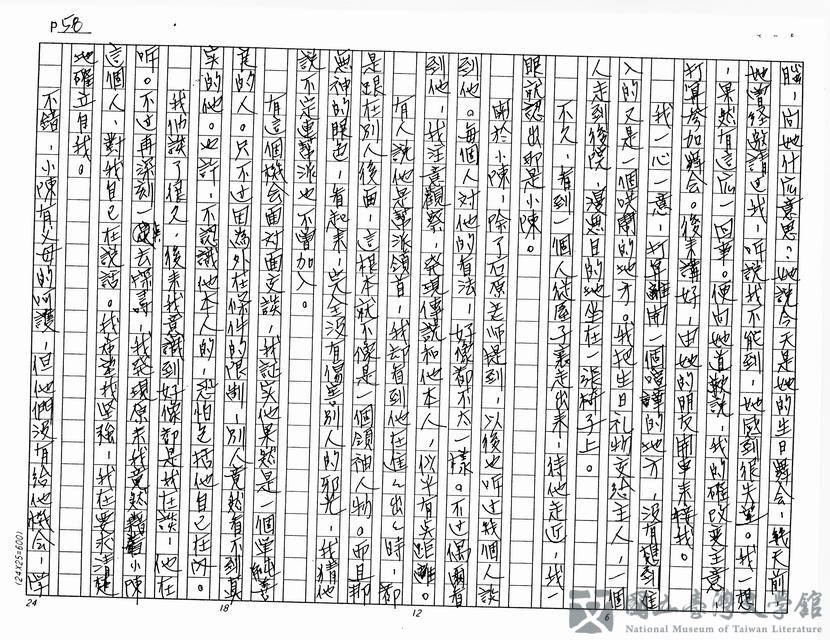 P58
腦，問她什庅意思？她說今天是她的生日舞会，幾天前
她曾經邀請过我，听說我不能到，她感到很失望。我一想
，果然有這庅一回事。便向她道歉說，我的確改变主意
打算参加舞会。後来講好，由她的朋友開車来接我。
我一心一意，打算離開一個喧譁的地方，沒有想到進
入的又是一個喧鬧的地方。我把生日礼物交給主人，一個
人走到後院，漫無目的地坐在一張椅子上。
不久，看到一個人從屋子裏走出来，待他走近，我一
眼就認出那是小陳。
関於小陳，除了石原老师提到，以後也听过幾個人談
到他。每個人对他的看法，好像都不太一樣。不过偶爾看
到他，我注意觀察，発現傳說和他本人，似乎有吳距離。
有人說他是幫派領首，我却看到他在進進出出時，都
是跟在別人後面，這根本就不像是一個領袖人物。而且那
無神的眼色，看起来，完全沒有傷害別人的邪光，我猜他
說不定連幫派也不曾加入。
有這個機会面对面交談，我証实他果然是一個单純善
良的人。只不过因為外在條件的限制，別人竟然看不到真
实的他。也許，不認識他本人的，恐怕包括他自己在內。
我們談了很久，後来我意識到好像都是我在談，他在
听。不过再深刻一层去探尋，我発現原来我竟然藉着小陳
這個人，对我自己在說話。我希望我坚強，我在要求清楚
地確立自我。
不錯，小陳有父母的呵護，但他們沒有給他機会，学
(24×25=600)
24
18
12
6
國立臺灣文學館
National Museum of Taiwan Literature